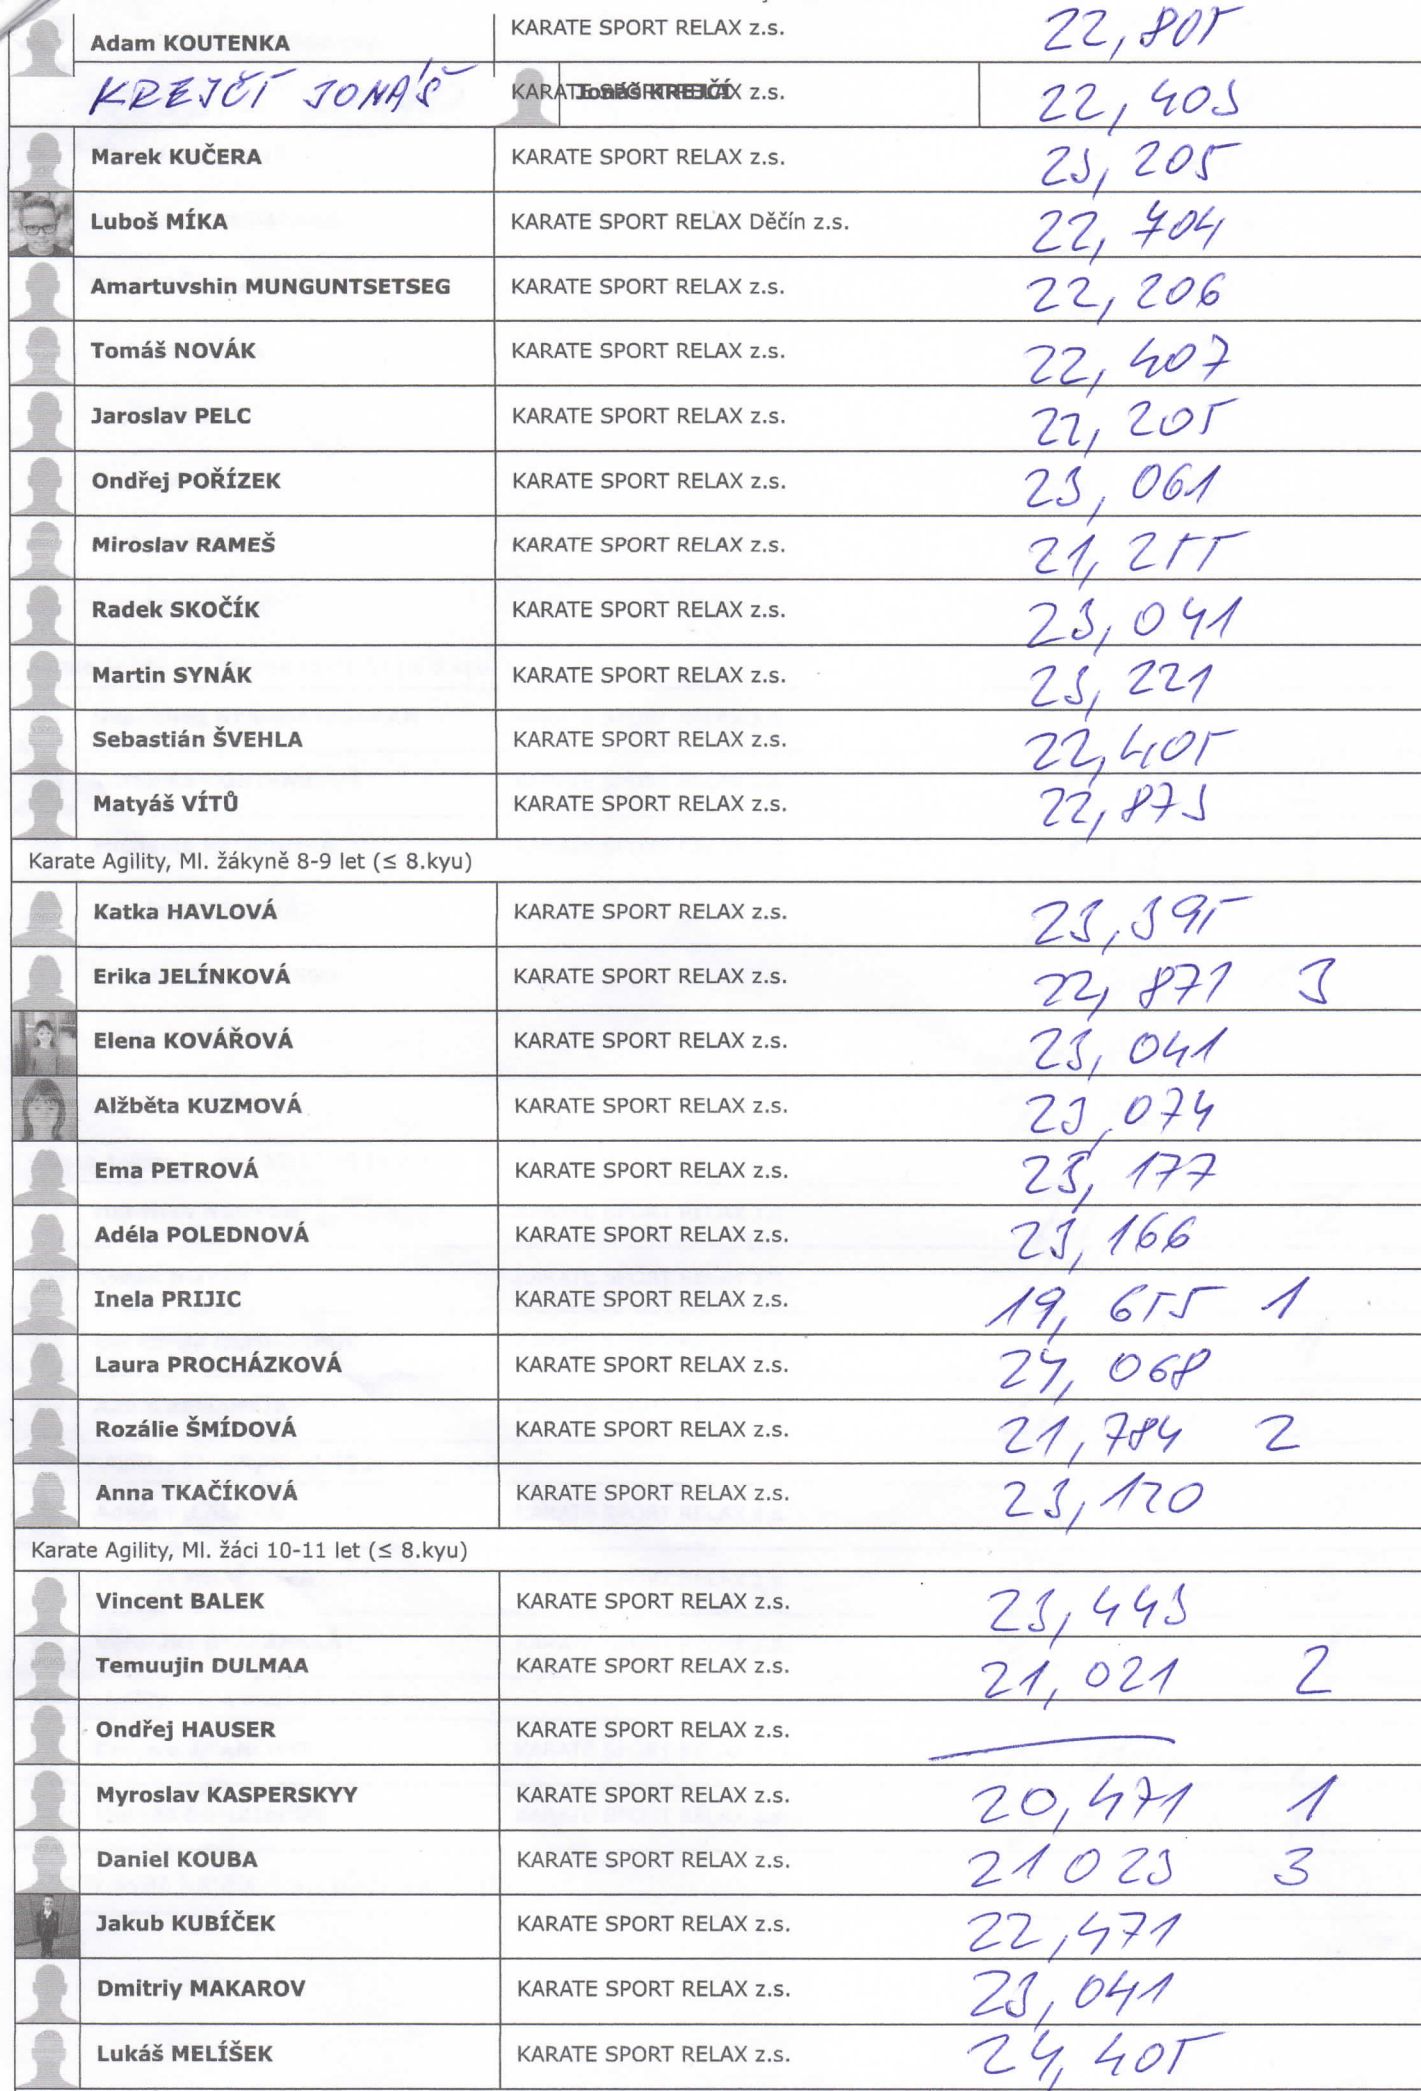 Adam KOUTENKA KARATE SPORT RELAX z.s. 22,805
KREJČÍ JONÁŠ KARATE SPORT RELAX z.s. Jonáš KREJČÍ 22,403
Marek KUČERA KARATE SPORT RELAX z.s. 23,205
Luboš MÍKA KARATE SPORT RELAX Děčín z.s. 22,704
Amartuvshin MUNGUNTSETSEG KARATE SPORT RELAX z.s. 22,206
Tomáš NOVÁK KARATE SPORT RELAX z.s. 22,407
Jaroslav PELC KARATE SPORT RELAX z.s. 22,205
Ondřej POŘÍZEK KARATE SPORT RELAX z.s. 23,061
Miroslav RAMEŠ KARATE SPORT RELAX z.s. 21,255
Radek SKOČÍK KARATE SPORT RELAX z.s. 23,041
Martin SYNÁK KARATE SPORT RELAX z.s. 23,221
Sebastián ŠVEHLA KARATE SPORT RELAX z.s. 22,405
Matyáš VÍTŮ KARATE SPORT RELAX z.s. 22,873
Karate Agility, Ml. žákyně 8-9 let (≤ 8.kyu)
Katka HAVLOVÁ KARATE SPORT RELAX z.s. 23,395
Erika JELÍNKOVÁ KARATE SPORT RELAX z.s. 22,871 3
Elena KOVÁŘOVÁ KARATE SPORT RELAX z.s. 23,041
Alžběta KUZMOVÁ KARATE SPORT RELAX z.s. 23,074
Ema PETROVÁ KARATE SPORT RELAX z.s. 23,177
Adéla POLEDNOVÁ KARATE SPORT RELAX z.s. 23,166
Inela PRIJIC KARATE SPORT RELAX z.s. 19,655 1
Laura PROCHÁZKOVÁ KARATE SPORT RELAX z.s. 24,068
Rozálie ŠMÍDOVÁ KARATE SPORT RELAX z.s. 21,784 2
Anna TKAČÍKOVÁ KARATE SPORT RELAX z.s. 23,120
Karate Agility, Ml. žáci 10-11 let (≤ 8.kyu)
Vincent BALEK KARATE SPORT RELAX z.s. 23,443
Temuujin DULMAA KARATE SPORT RELAX z.s. 21,021 2
Ondřej HAUSER KARATE SPORT RELAX z.s.
Myroslav KASPERSKYY KARATE SPORT RELAX z.s. 20,471 1
Daniel KOUBA KARATE SPORT RELAX z.s. 21 023 3
Jakub KUBÍČEK KARATE SPORT RELAX z.s. 22,471
Dmitriy MAKAROV KARATE SPORT RELAX z.s. 23,041
Lukáš MELÍŠEK KARATE SPORT RELAX z.s. 24,405